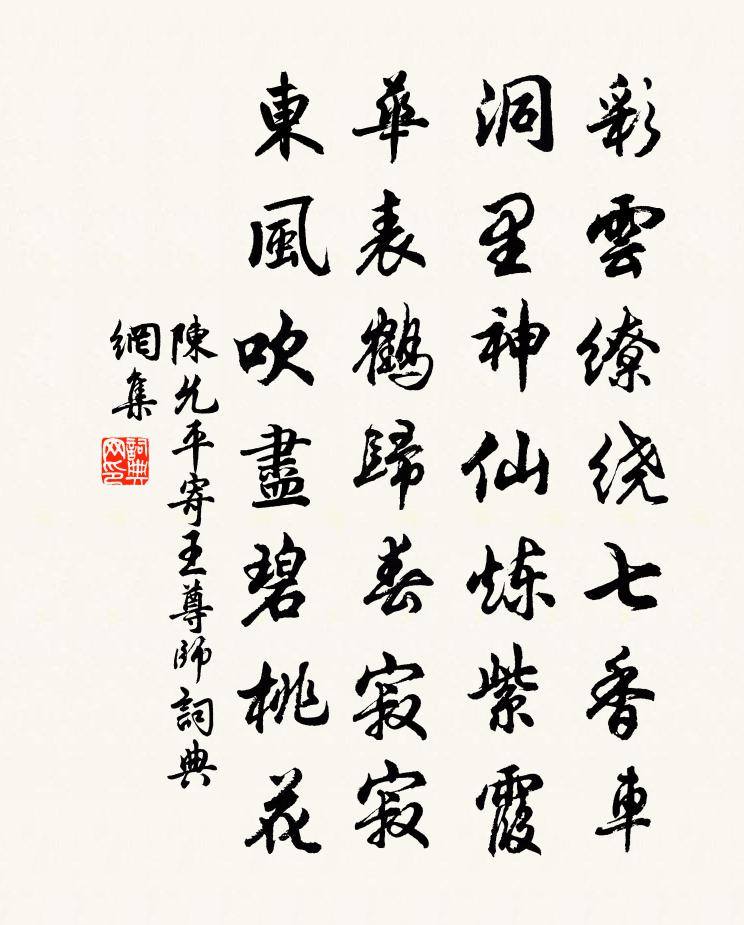 彩雲繚绕七香車
洞里神仙炼紫霞
華表鶴歸春寂寂
東風吹盡碧桃花
陳允平寄王尊師詞典
網集
詞典
网印